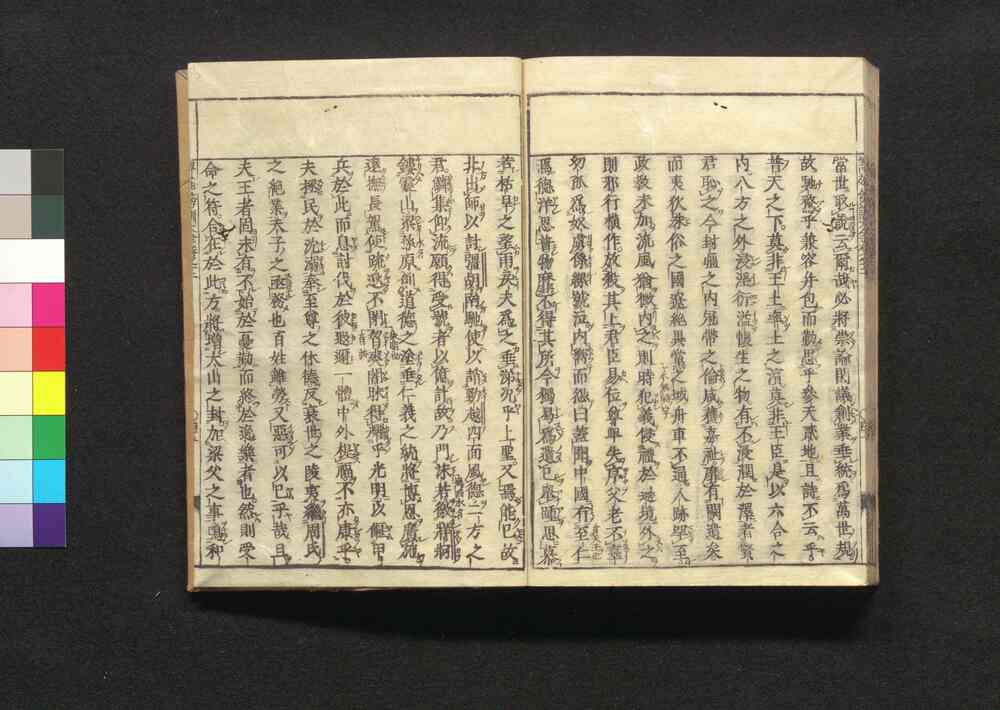 當世取說云爾哉必將崇論閎議創業垂統爲萬世規
故馳騖乎兼容并包而勤思乎參天貳地且詩不云乎
普天之下莫非王土率土之濱莫非王臣是以六合之
內八方之外浸淫衍溢懷生之物有不浸潤於澤者賢
君恥之今封疆之內冠帶之倫咸獲嘉祉靡有闕遺矣
而夷狄殊俗之國遼絕異黨之域舟車不通人跡罕至
政教未加流風猶微內之則時犯義侵禮於邊境外之
則邪行橫作放殺其上君臣易位尊卑失序父老不辜
幼孤爲奴虜係縲號泣內嚮而怨曰蓋聞中國有至仁
焉德洋恩普物靡不得其所今獨曷爲遺已舉踵思慕
若枯旱之望雨戾夫爲之垂涕況乎上聖又焉能已故
北出師以討彊胡南馳使以誚勁越四面風德二方之
君鱗集仰流願得受號者以億計故乃關沬若徼牂牁
鏤靈山梁孫原創道德之塗垂仁義之統將博恩廣施
遠撫長駕使疏逖不閉曶爽闇昧得耀乎光明以偃甲
兵於此而息討伐於彼遐邇一體中外禔福不亦康乎
夫拯民於沈溺奉至尊之休德反衰世之陵夷繼周氏
之絕業天子之亟務也百姓雖勞又惡可以已乎哉且
夫王者固未有不始於憂勤而終於逸樂者也然則受
命之符合在於此方將增太山之封加梁父之事鳴和